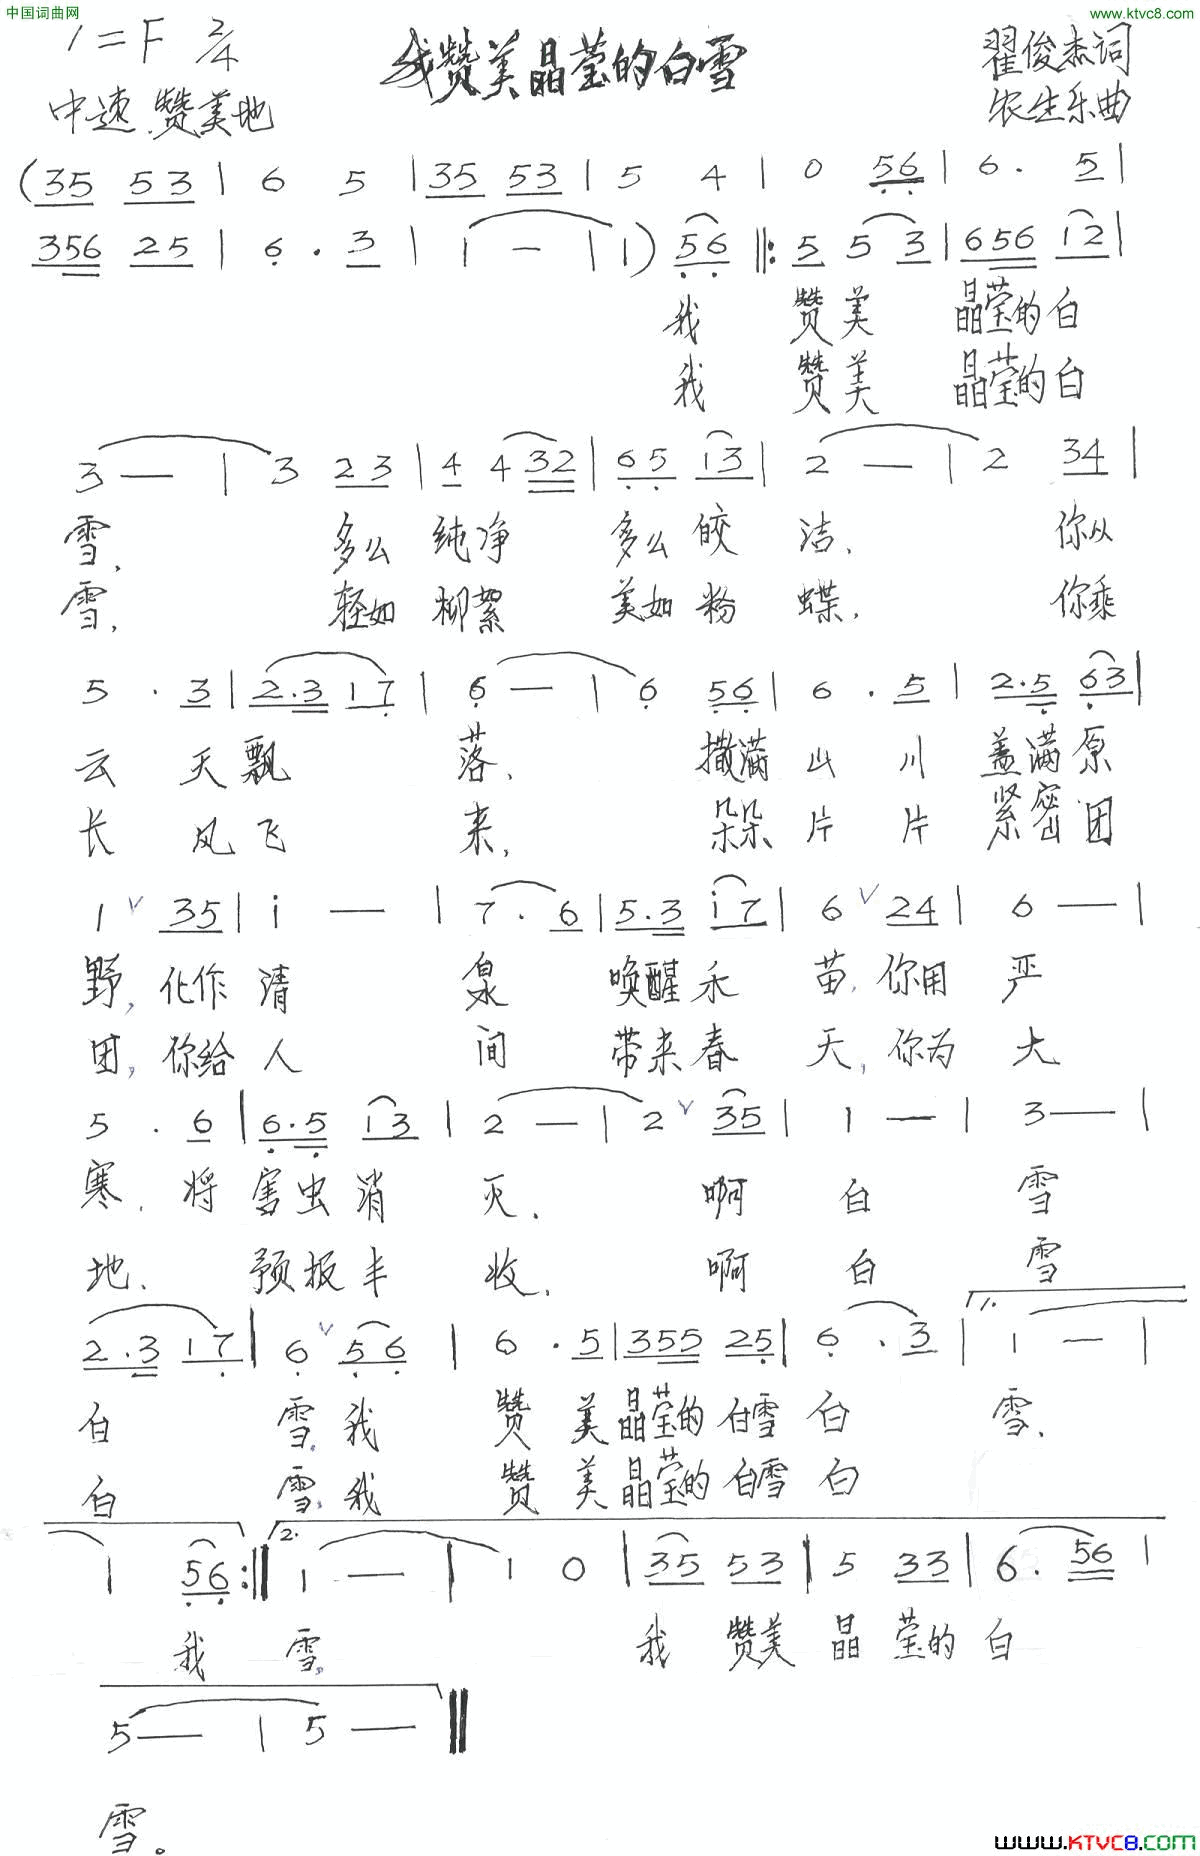 中国词曲网
www.ktvc8.com
1=F 2/4
我赞美晶莹的白雪
翟俊杰词
中速 赞美地
农生乐曲
(35 53 | 6 5 | 35 53 | 5 4 | 0 56 | 6. 5 |
356 25 | 6. 3 | 1 — | 1) 56 ‖: 5 5 3 | 656 12 |
我 赞美 晶莹的白
我 赞美 晶莹的白
3 — | 3 23 | 4 4 32 | 65 13 | 2 — | 2 34 |
雪, 多么 纯净 多么 皎 洁, 你从
雪, 轻如 柳絮 美如 粉 蝶, 你乘
5 . 3 | 2.3 17 | 6 — | 6 56 | 6 . 5 | 2.5 63 |
云 天 飘 落, 撒满 山 川 盖满 原
长 风 飞 来, 朵朵 片 片 紧密 团
1 ∨ 35 | i — | 7 . 6 | 5.3 i7 | 6 ∨ 24 | 6 — |
野, 化作 清 泉 唤醒 禾 苗, 你用 严
团, 你给 人 间 带来 春 天, 你为 大
5 . 6 | 6.5 13 | 2 — | 2 ∨ 35 | 1 — | 3 — |
寒, 将 害虫 消 灭, 啊 白 雪
地, 预报 丰 收, 啊 白 雪
2.3 17 | 6 ∨ 56 | 6 . 5 | 355 25 | 6 . 3 | 1. 1 — |
白 雪, 我 赞 美 晶莹的 白雪 白 雪,
白 雪, 我 赞 美 晶莹的 白雪 白
1 56 :‖ 2. 1 — | 1 0 | 35 53 | 5 33 | 6. 56 |
我 雪, 我 赞美 晶 莹的 白
5 — | 5 — ‖
雪。
www.KTVC8.com